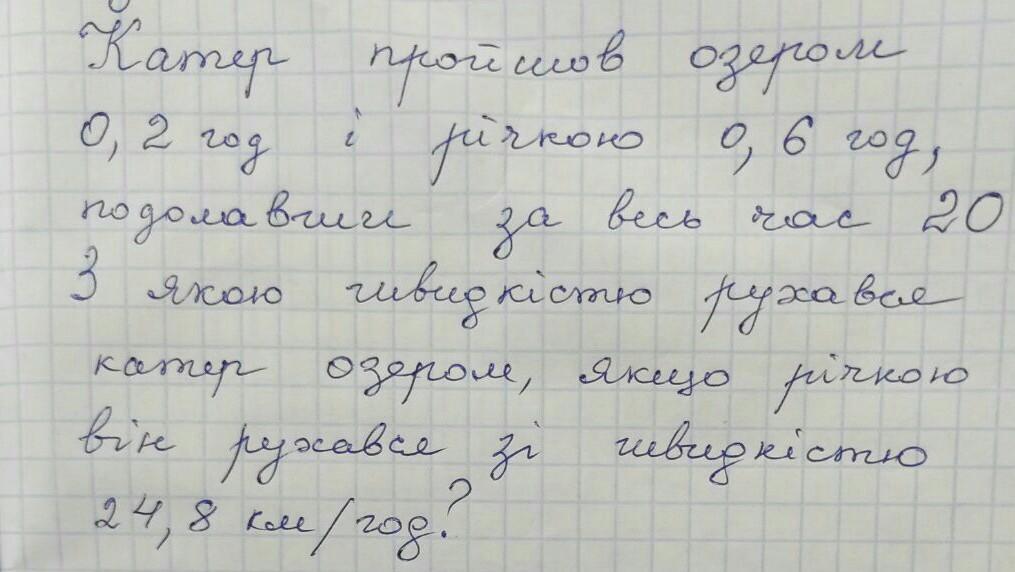 Катер пройшов озером
0,2 год і річкою 0,6 год,
подолавши за весь час 20
З якою швидкістю рухався
катер озером, якщо річкою
він рухався зі швидкістю
24,8 км/год?